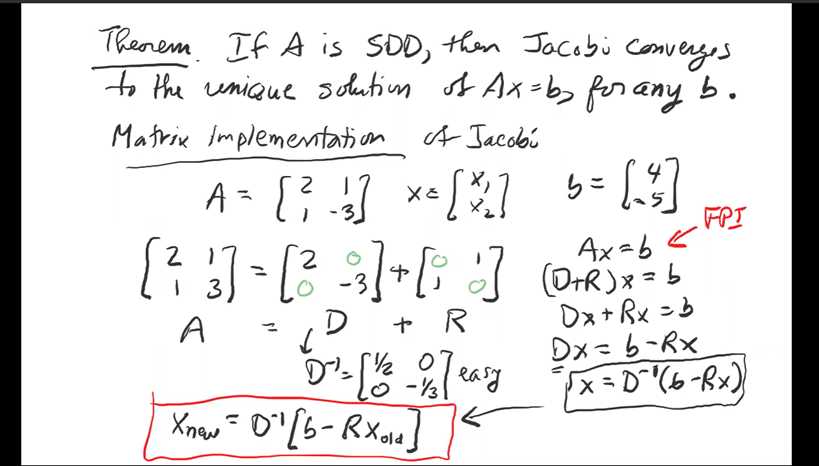 Theorem. If A is SDD, then Jacobi converges
to the unique solution of Ax=b, for any b.
Matrix Implementation of Jacobi
A = [2 1; 1 -3] x = [x₁; x₂] b = [4; -5]
FPI
[2 1; 1 3] = [2 0; 0 -3] + [0 1; 1 0]
A = D + R
D⁻¹ = [1/2 0; 0 -1/3] easy
Ax = b
(D+R)x = b
Dx + Rx = b
Dx = b - Rx
x = D⁻¹(b - Rx)
xnew = D⁻¹[b - Rxold]